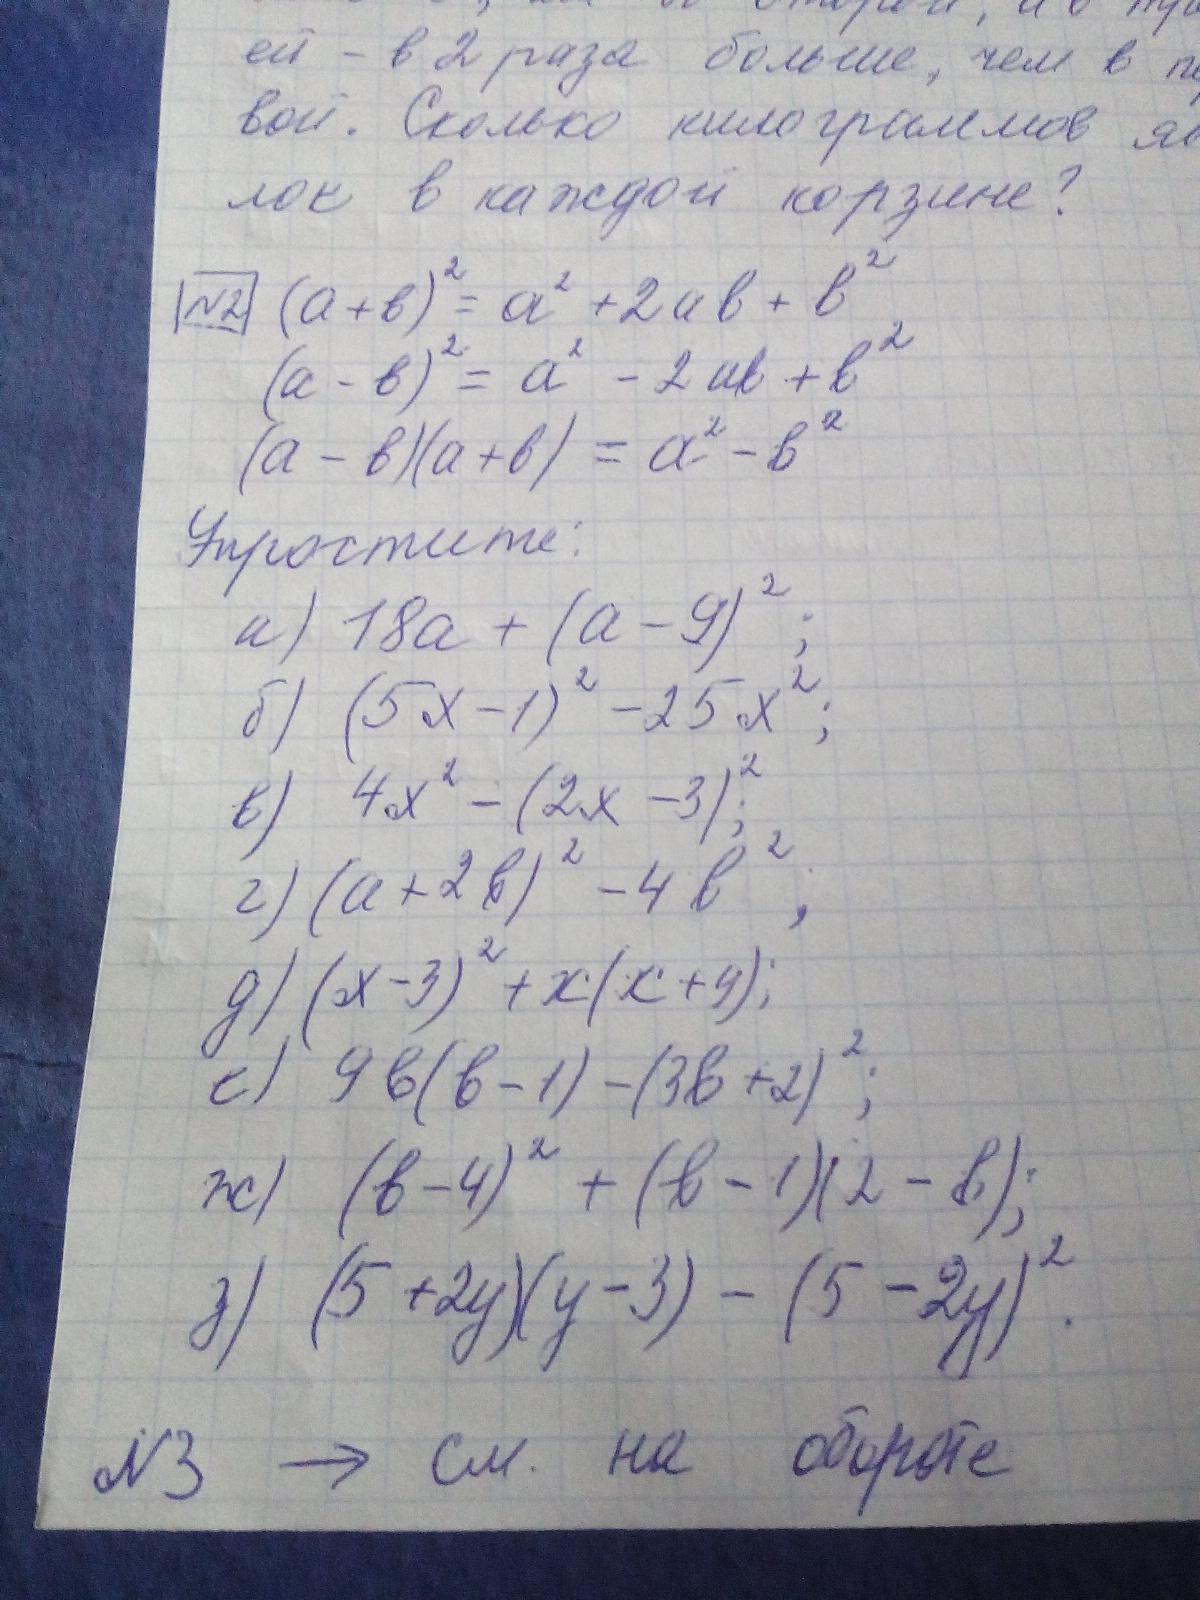 второй, а в
ей - в 2 раза больше, чем в
вой. Сколько килограммов яб
лок в каждой корзине?
№2 (a+b)² = a² + 2ab + b²
(a - b)² = a² - 2ab + b²
(a - b)(a+b) = a² - b²
Упростите:
а) 18a + (a - 9)²;
б) (5x - 1)² - 25x²;
в) 4x² - (2x - 3)²;
г) (a + 2b)² - 4b²;
д) (x - 3)² + x(x + 9);
е) 9b(b - 1) - (3b + 2)²;
ж) (b - 4)² + (b - 1)(2 - b);
з) (5 + 2y)(y - 3) - (5 - 2y)².
№3 → см. на обороте